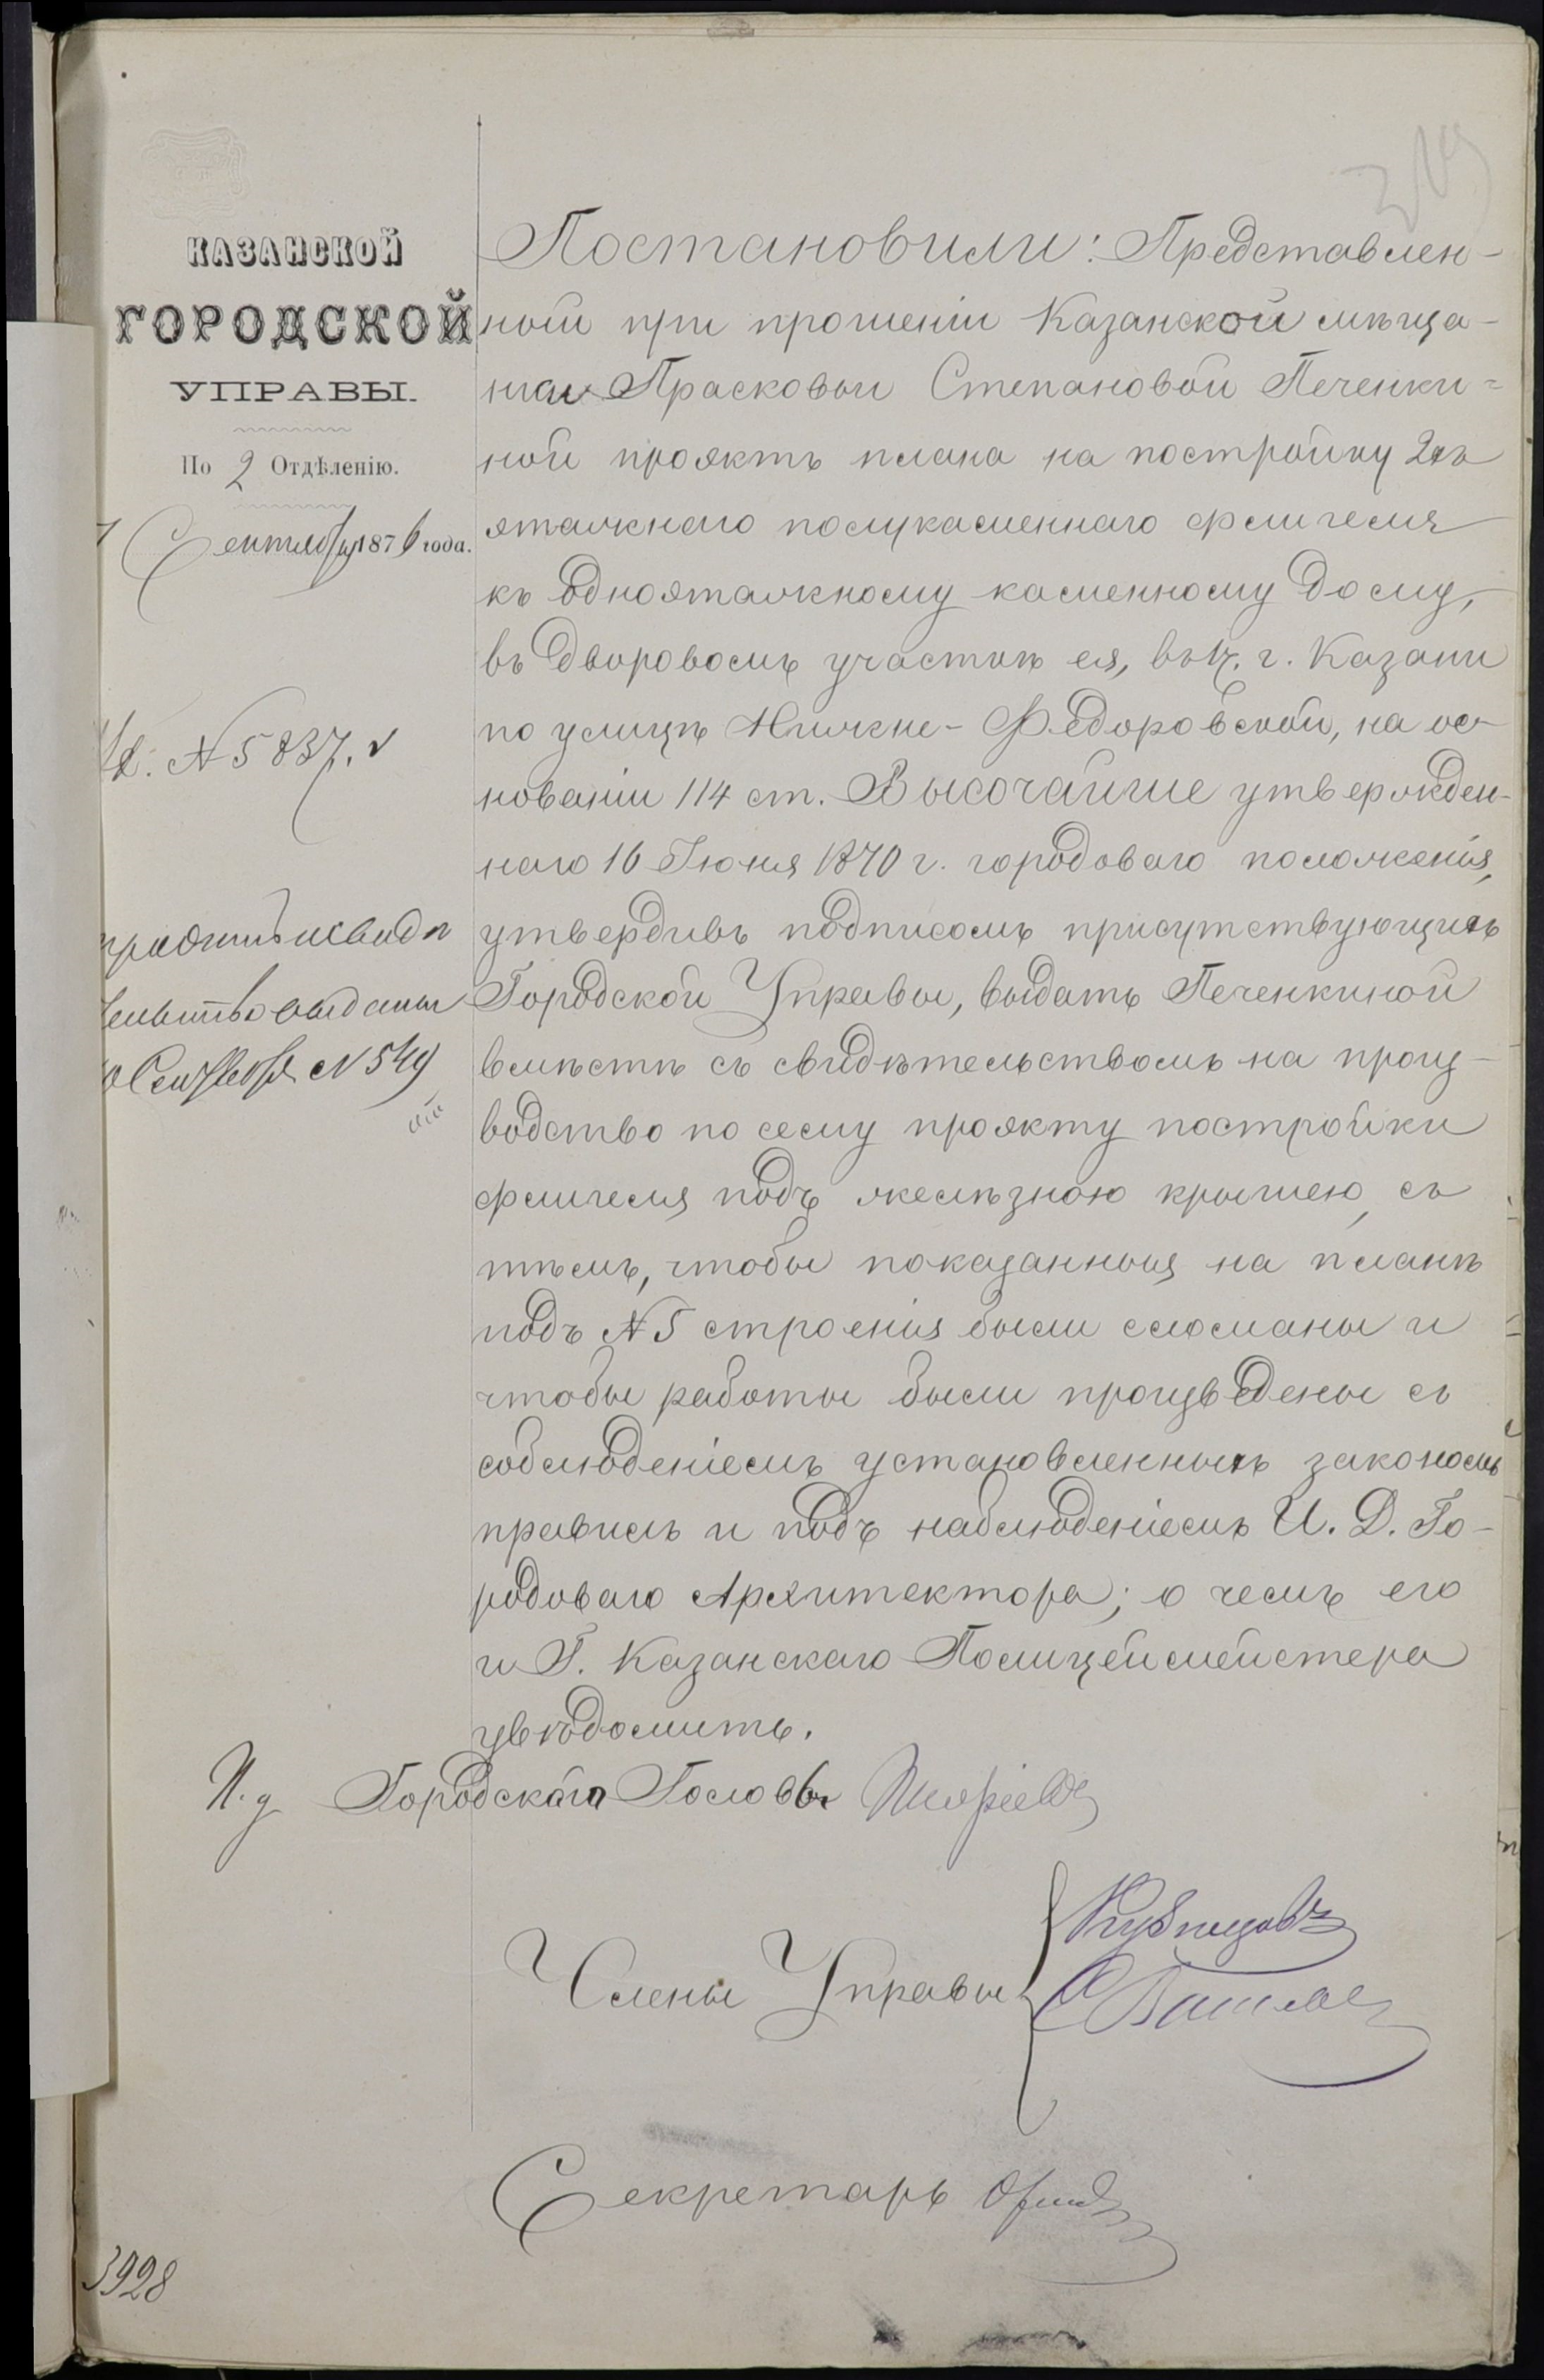 КАЗАНСКОЙ
ГОРОДСКОЙ
УПРАВЫ.
По 2 Отдѣленію.
Сентября 1876 года.
№ 5837.
выданы
Сентября № 549
Постановили: Представлен-
ной при прошеніи Казанской мѣща-
нки Прасковьи Степановой Печенки-
ной проэктъ плана на постройку 2хъ
этажнаго полукаменнаго флигеля
къ одноэтажному каменному дому,
въ дворовомъ участкѣ ея, въ ч. г. Казани
по улицѣ Нижне-Федоровской, на ос-
нованіи 114 ст. Высочайше утвержден-
наго 16 Іюня 1870 г. городоваго положенія,
утвердивъ подписомъ присутствующихъ
Городской Управы, выдать Печенкиной
вмѣстѣ съ свидѣтельствомъ на произ-
водство по сему проэкту постройки
флигеля подъ желѣзною крышею, съ
тѣмъ, чтобы показанныя на планѣ
подъ № 5 строенія были сломаны и
чтобы работы были произведены съ
соблюденіемъ установленныхъ закономъ
правилъ и подъ наблюденіемъ И. Д. Го-
родоваго Архитектора; о чемъ его
и Г. Казанскаго Полицеймейстера
увѣдомить.
И. д Городскаго Головы
Члены Управы
Кузнецовъ
Секретарь
3928